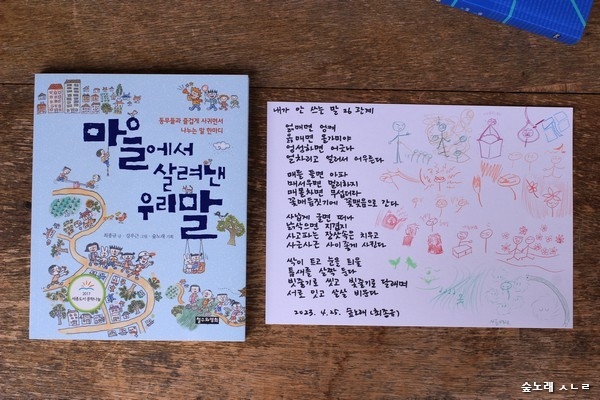 동무들과 즐겁게 사귀면서
나누는 말 한마디
마을에서
살려낸
우리말
최종규 글 · 강우근 그림 · 숲노래 기획
2017
세종도서 문학나눔
철수와영희
내가 안 쓰는 말 26 관계
얽매면 엉켜
옭매면 올가미야
엉성하면 어긋나
얼차리고 얼려서 어우른다
매를 들면 아파
매서우면 멀리하지
매몰차면 무섭더라
꽃매듭짓기에 꽃맺음으로 간다
사납게 굴면 떠나
낡삭으면 지겹지
사고파는 장삿속은 치우고
사근사근 사이좋게 사귄다
싹이 트고 눈을 틔울
틈새를 살짝 둔다
빗줄기로 씻고 빛줄기로 달래며
서로 잇고 살살 비춘다
2023. 4. 25. 숲노래 (최종규)
숲노래 ㅅㄴㄹ